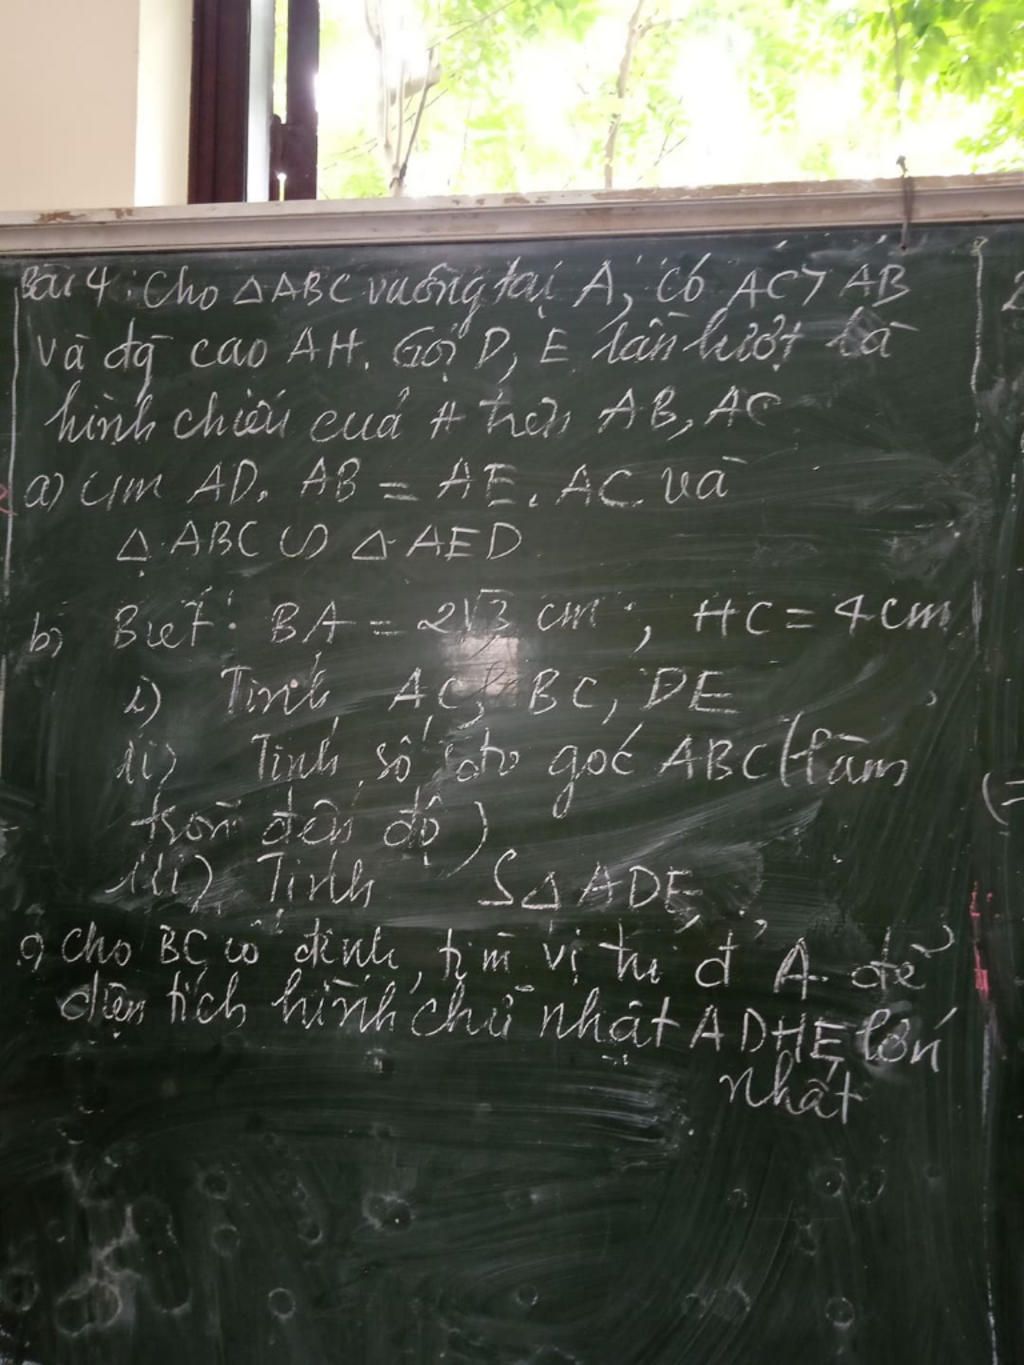 Bài 4: Cho △ABC vuông tại A, có AC > AB
và đg cao AH. Gọi D, E lần lượt là
hình chiếu của H trên AB, AC
a) CM AD. AB = AE. AC và
△ ABC ∽ △ AED
b) Biết: BA = 2√3 cm ; HC = 4cm
i) Tính AC, BC, DE
ii) Tính số đo góc ABC (làm
tròn đến độ)
iii) Tính S△ ADE
c) Cho BC cố định, tìm vị trí đ' A để
diện tích hình chữ nhật ADHE lớn
nhất